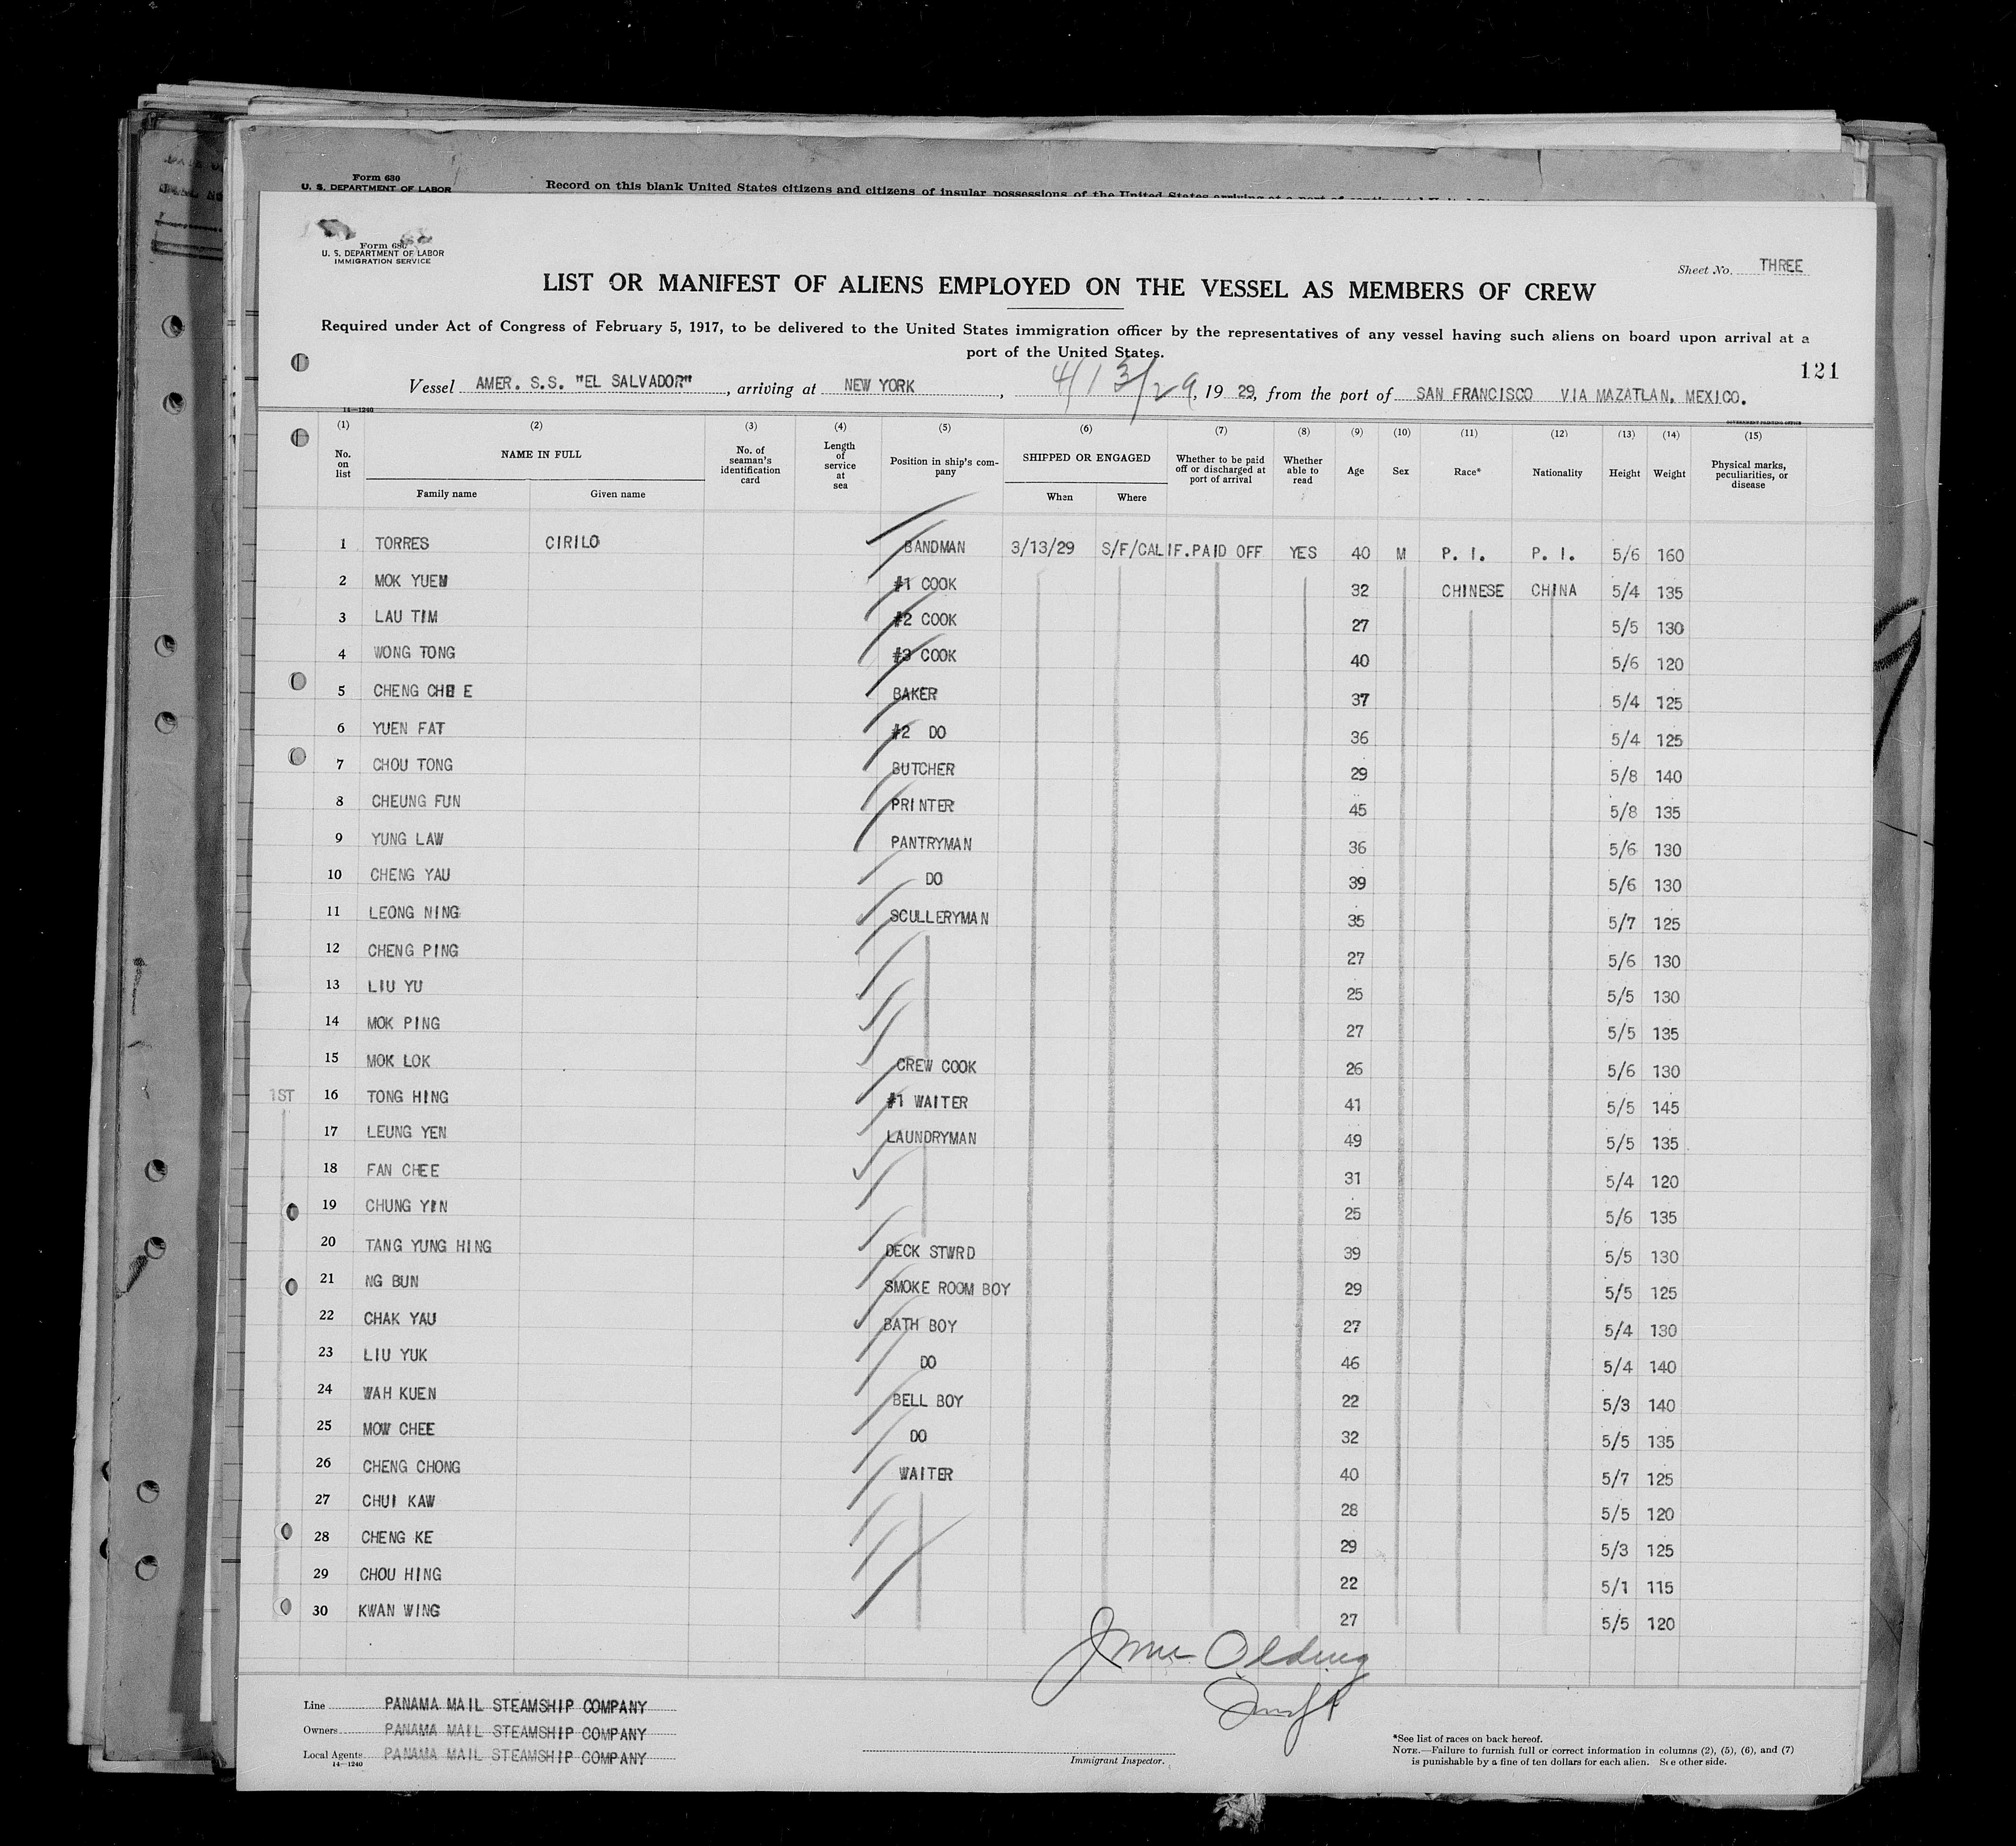 Form 630
U. S. DEPARTMENT OF LABOR
Record on this blank United States citizens and citizens of insular possessions of the United States arriving at a port of continental
Form 680
U. S. DEPARTMENT OF LABOR
IMMIGRATION SERVICE
Sheet No. THREE
LIST OR MANIFEST OF ALIENS EMPLOYED ON THE VESSEL AS MEMBERS OF CREW
Required under Act of Congress of February 5, 1917, to be delivered to the United States immigration officer by the representatives of any vessel having such aliens on board upon arrival at a
port of the United States.
121
Vessel AMER. S.S. "EL SALVADOR", arriving at NEW YORK, 4/13/29, 19 29, from the port of SAN FRANCISCO VIA MAZATLAN, MEXICO.
14—1240 GOVERNMENT PRINTING OFFICE
(1) (2) (3) (4) (5) (6) (7) (8) (9) (10) (11) (12) (13) (14) (15)
No. on list NAME IN FULL Family name Given name No. of seaman's identification card Length of service at sea Position in ship's company SHIPPED OR ENGAGED When Where Whether to be paid off or discharged at port of arrival Whether able to read Age Sex Race* Nationality Height Weight Physical marks, peculiarities, or disease
1 TORRES CIRILO BANDMAN 3/13/29 S/F/CALIF. PAID OFF YES 40 M P. I. P. I. 5/6 160
2 MOK YUEN #1 COOK 32 CHINESE CHINA 5/4 135
3 LAU TIM #2 COOK 27 5/5 130
4 WONG TONG #3 COOK 40 5/6 120
5 CHENG CHE E BAKER 37 5/4 125
6 YUEN FAT #2 DO 36 5/4 125
7 CHOU TONG BUTCHER 29 5/8 140
8 CHEUNG FUN PRINTER 45 5/8 135
9 YUNG LAW PANTRYMAN 36 5/6 130
10 CHENG YAU DO 39 5/6 130
11 LEONG NING SCULLERYMAN 35 5/7 125
12 CHENG PING 27 5/6 130
13 LIU YU 25 5/5 130
14 MOK PING 27 5/5 135
15 MOK LOK CREW COOK 26 5/6 130
1ST 16 TONG HING #1 WAITER 41 5/5 145
17 LEUNG YEN LAUNDRYMAN 49 5/5 135
18 FAN CHEE 31 5/4 120
19 CHUNG YIN 25 5/6 135
20 TANG YUNG HING DECK STWRD 39 5/5 130
21 NG BUN SMOKE ROOM BOY 29 5/5 125
22 CHAK YAU BATH BOY 27 5/4 130
23 LIU YUK DO 46 5/4 140
24 WAH KUEN BELL BOY 22 5/3 140
25 MOW CHEE DO 32 5/5 135
26 CHENG CHONG WAITER 40 5/7 125
27 CHUI KAW 28 5/5 120
28 CHENG KE 29 5/3 125
29 CHOU HING 22 5/1 115
30 KWAN WING 27 5/5 120
Olding
Line PANAMA MAIL STEAMSHIP COMPANY
Owners PANAMA MAIL STEAMSHIP COMPANY
Local Agents PANAMA MAIL STEAMSHIP COMPANY
14—1240
Immigrant Inspector.
*See list of races on back hereof.
NOTE.—Failure to furnish full or correct information in columns (2), (5), (6), and (7)
is punishable by a fine of ten dollars for each alien. See other side.